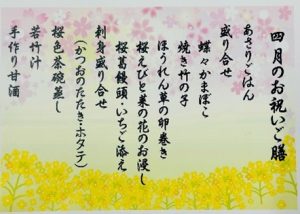 四月のお祝いご膳
あさりごはん
盛り合せ
蝶々かまぼこ
焼き竹の子
ほうれん草の卵巻き
桜えびと菜の花のお浸し
桜葛饅頭・いちご添え
刺身盛り合せ
(かつおのたたき・ホタテ)
桜色茶碗蒸し
若竹汁
手作り甘酒